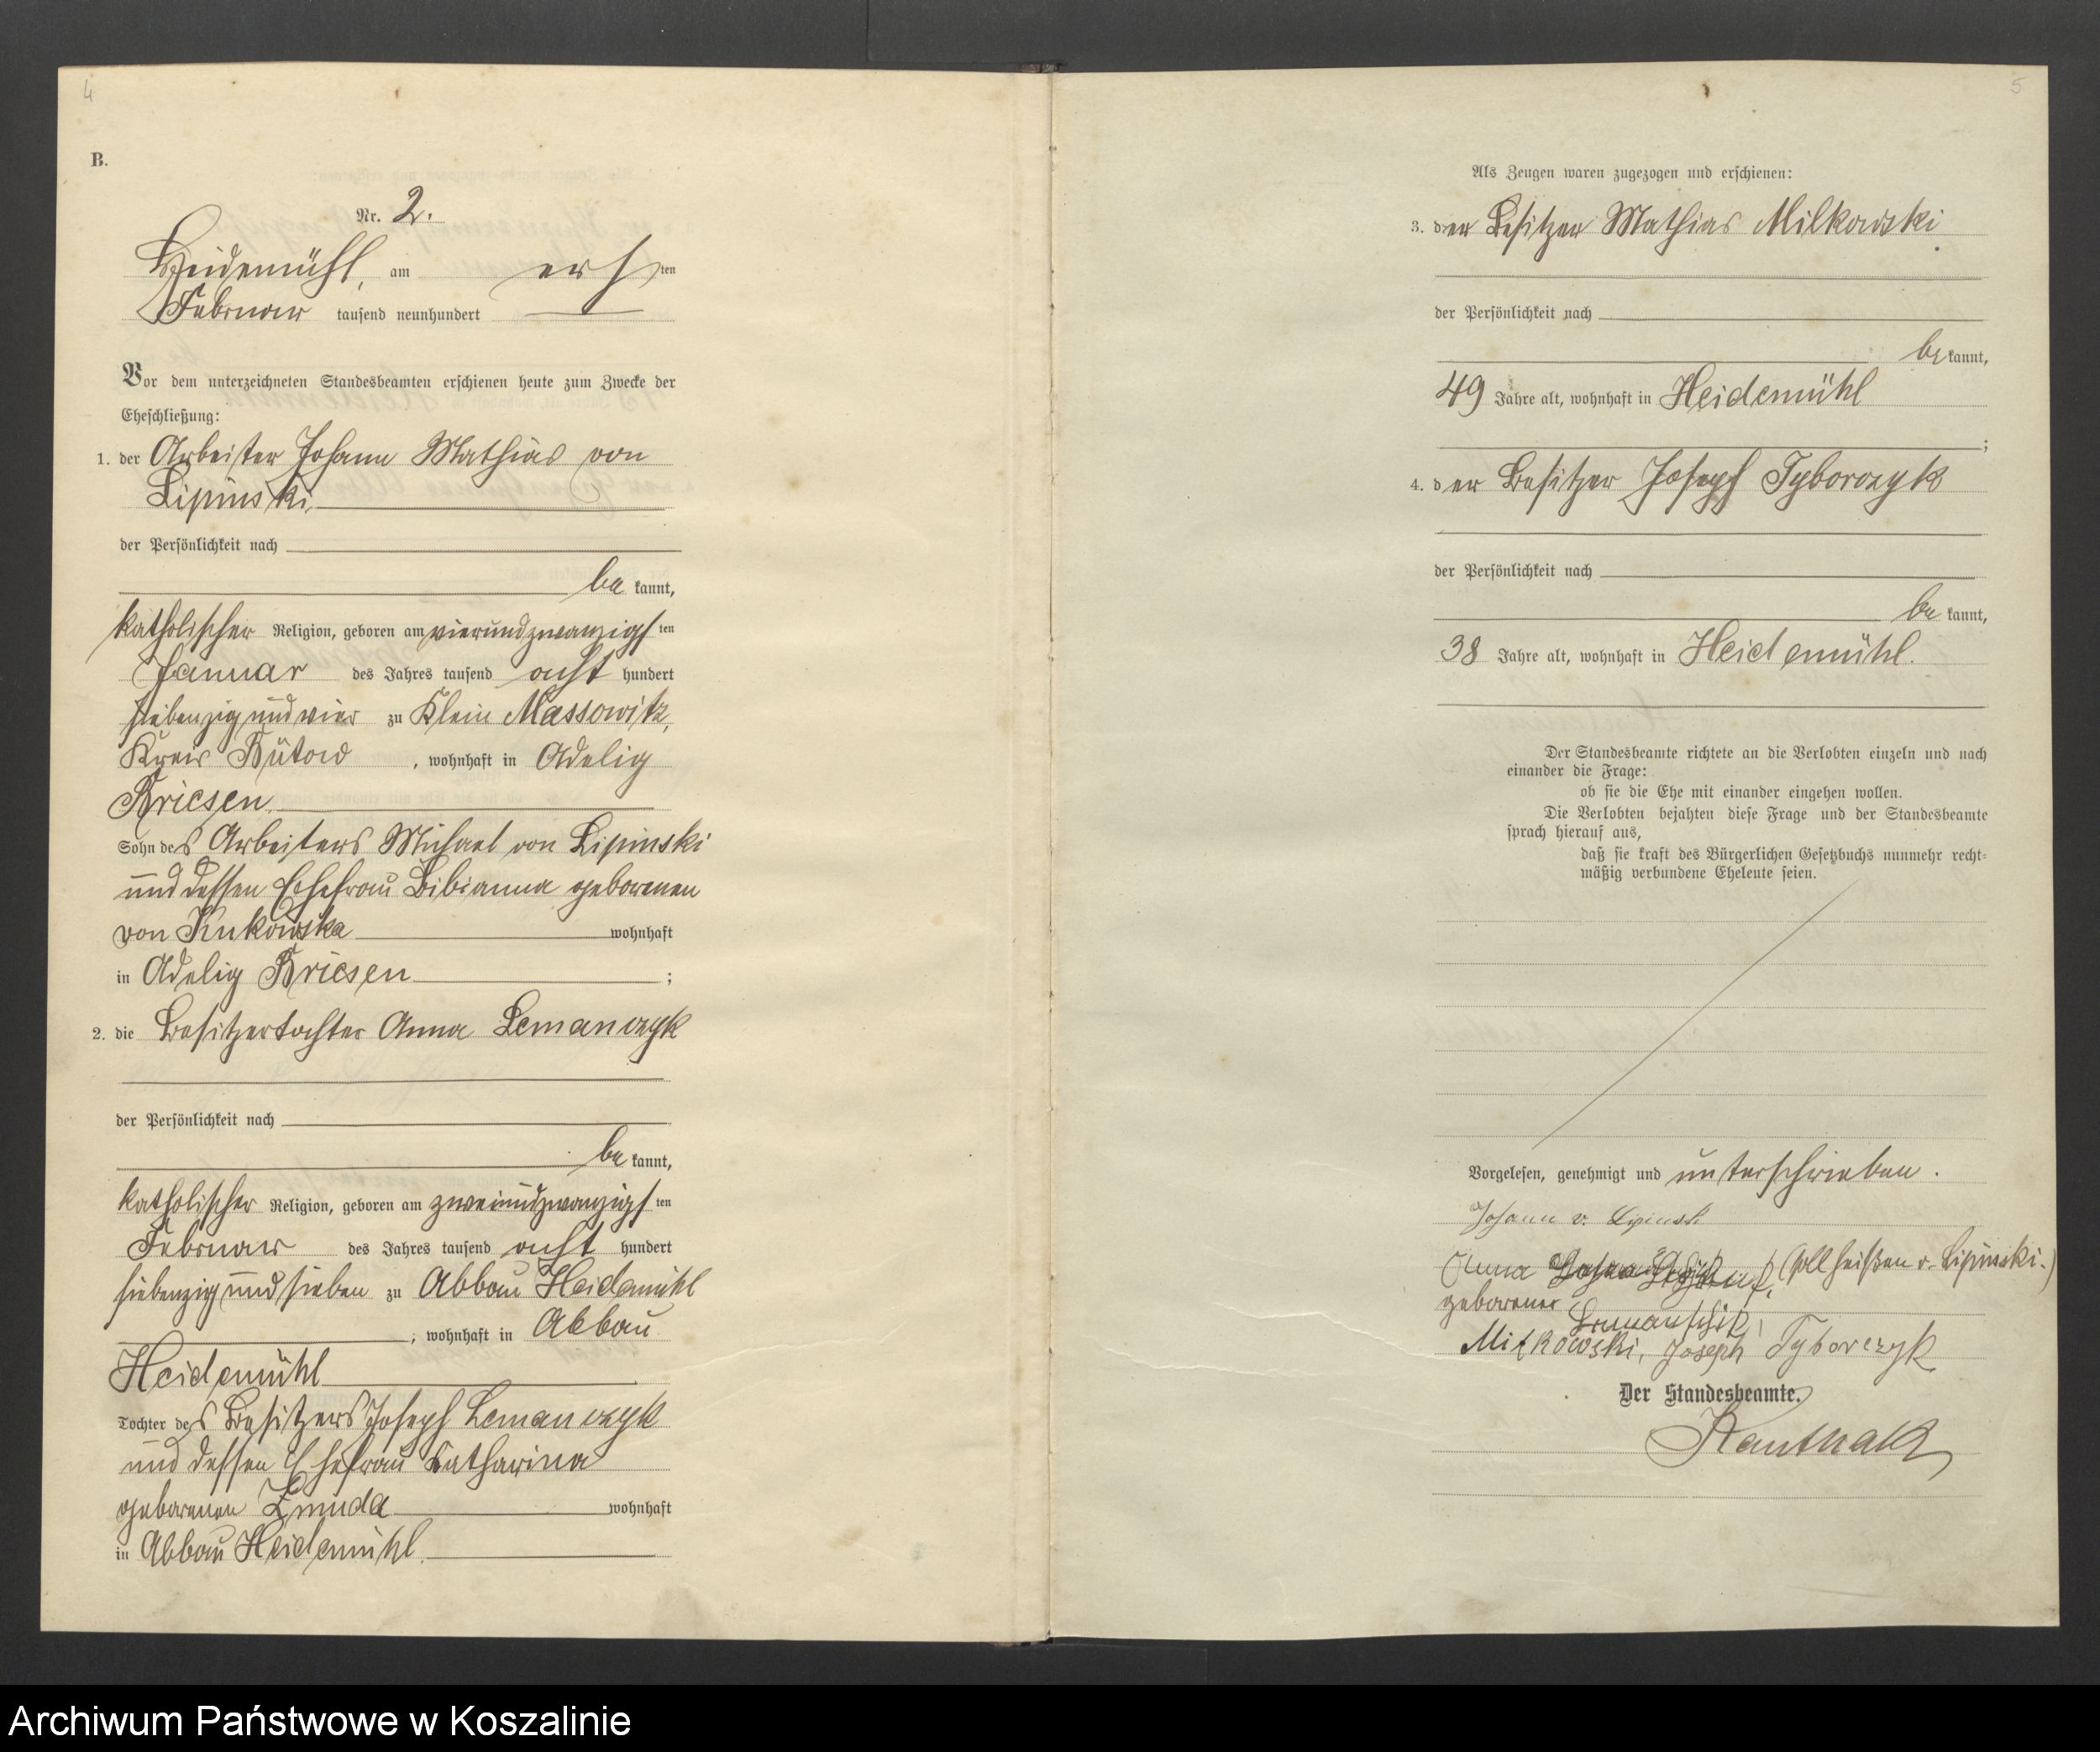 4
B.
Nr. 2.
Heidemühl, am erſ ten
Februar tauſend neunhundert
Vor dem unterzeichneten Standesbeamten erſchienen heute zum Zwecke der
Eheſchließung:
1. der Arbeiter Johann Mathias von
Lipinski,
der Perſönlichkeit nach
be kannt,
katholiſcher Religion, geboren am vierundzwanzigſ ten
Januar des Jahres tauſend acht hundert
ſiebenzig und vier zu Klein Massowitz,
Kreis Bütow , wohnhaft in Adelig
Briesen
Sohn des Arbeiters Michael von Lipinski
und deſſen Ehefrau Bibianna geborenen
von Kukowska wohnhaft
in Adelig Briesen ;
2. die Beſitzertochter Anna Lemanczyk
der Perſönlichkeit nach
be kannt,
katholiſcher Religion, geboren am zweiundzwanzigſ ten
Februar des Jahres tauſend acht hundert
ſiebenzig und ſieben zu Abbau Heidemühl
, wohnhaft in Abbau
Heidemühl
Tochter des Beſitzers Joſeph Lemanczyk
und deſſen Ehefrau Catharina
geborenen Zmuda wohnhaft
in Abbau Heidemühl.
5
Als Zeugen waren zugezogen und erſchienen:
3. der Beſitzer Mathias Milkowski
der Perſönlichkeit nach
be kannt,
49 Jahre alt, wohnhaft in Heidemühl
;
4. der Beſitzer Joſeph Tyborczyk
der Perſönlichkeit nach
be kannt,
38 Jahre alt, wohnhaft in Heidemühl.
Der Standesbeamte richtete an die Verlobten einzeln und nach
einander die Frage:
ob ſie die Ehe mit einander eingehen wollen.
Die Verlobten bejahten dieſe Frage und der Standesbeamte
ſprach hierauf aus,
daß ſie kraft des Bürgerlichen Geſetzbuchs nunmehr recht-
mäßig verbundene Eheleute ſeien.
Vorgeleſen, genehmigt und unterſchrieben.
Johann v. Lipinski
Anna (ſoll heißen v. Lipinski.)
geborener
Lemanſchik,
Milkowski, Joseph Tyborczyk
Der Standesbeamte.
Kauthak
Archiwum Państwowe w Koszalinie